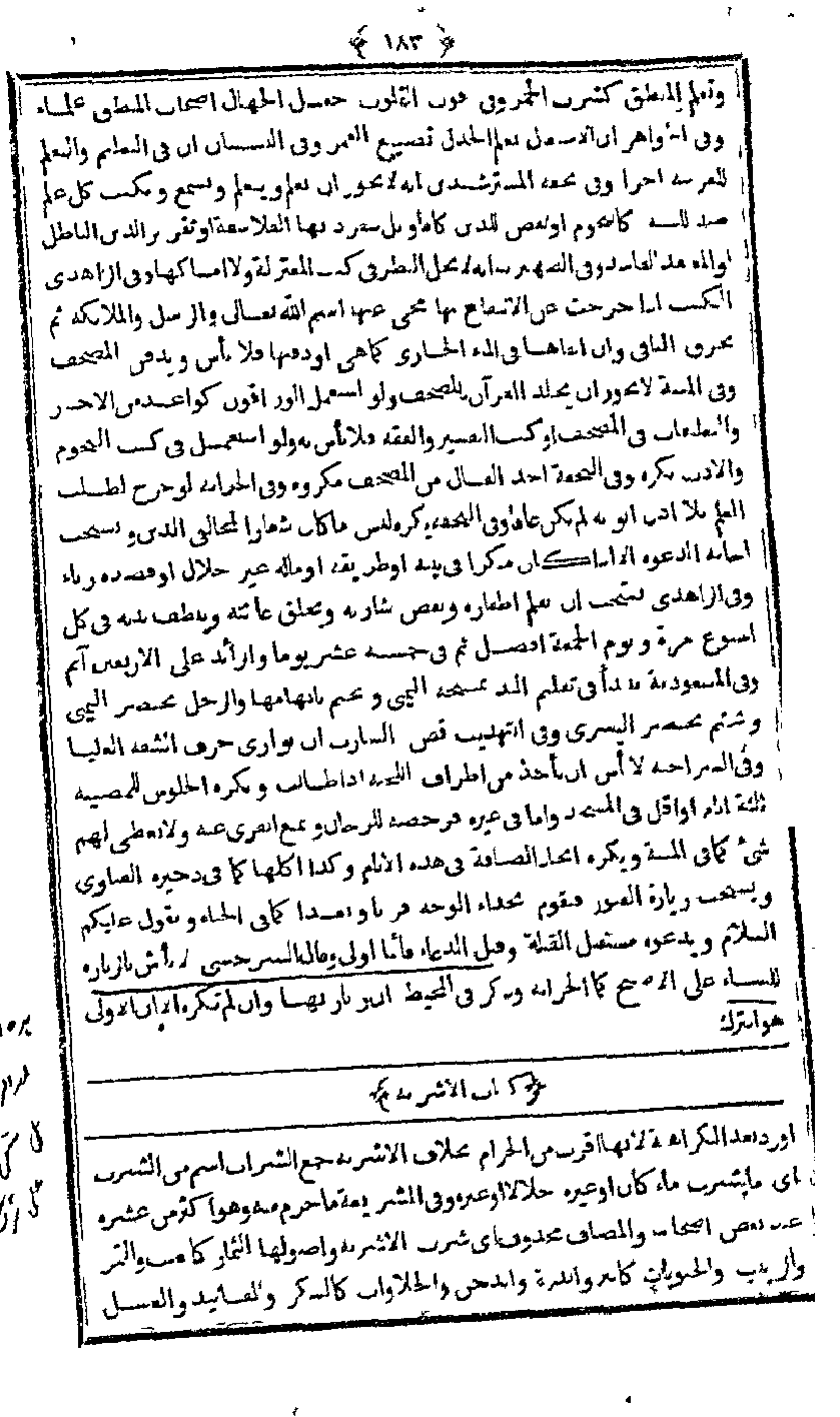 ﴿ ١٨٣ ﴾
وتعلم المنطق كشرب الخمر وفى قوت القلوب جعل الجهال اصحاب المنطق علماء
وفى الجواهر ان الاشتغال بعلم الجدل تضييع العمر وفى البستان ان فى التعليم والتعلم
للعربية اجرا وفى تحفة المسترشدى انه لا يجوز ان تعلم ويتعلم وتسمع وتكتب كل علم
كالنجوم او نقض للدين بها الفلاسفة او تقرير الدين الباطل
او الفاسد وفى الظهيرية انه لا يحل النظر فى كتب المعتزلة ولا امساكها وفى الزاهدى
الكتب اذا خرجت عن الانتفاع بها محى عنها اسم الله تعالى والرسل والملائكة ثم
يحرق الباقى وان القاها فى الماء الجارى كما هى او دفنها فلا بأس ويدفن المصحف
وفى المنية لا يجوز ان يجلد القرآن بالمصحف ولو استعمل الوراقون كواغد من الاخبار
والتعليقات فى المصحف او كتب التفسير والفقه فلا بأس به ولو استعمل فى كتب النجوم
والادب يكره وفى التحفة اخذ الفال من المصحف مكروه وفى الخزانة لو خرج لطلب
العلم بلا اذن ابويه لم يكن عاقا وفى التحفة يكره لبس ما كان شعارا لمخالفى الدين ويستحب
اجابة الدعوة الا اذا كان منكرا فى بيته او طريقه او ماله غير حلال او قصده رياء
وفى الزاهدى يستحب ان يقلم اظفاره ويقص شاربه ويحلق عانته وينظف بدنه فى كل
اسبوع مرة ويوم الجمعة افضل ثم فى خمسة عشر يوما والزائد على الاربعين آثم
وفى المسعودية يبدأ فى تقليم اليد بمسبحة اليمنى ويختم بابهامها والرجل بخنصر اليمنى
ويختم بخنصر اليسرى وفى التهذيب قص الشارب ان يوازى حرف الشفة العليا
وفى السراجية لا بأس ان يأخذ من اطراف اللحية اذا طالت ويكره الجلوس للمصيبة
ثلثة ايام او اقل فى المسجد واما فى غيره فرخصة للرجال ويمنع القرى عنه ولا يعطى لهم
شئ كما فى المنية ويكره اتخاذ الضيافة فى هذه الايام وكذا اكلها كما فى ذخيرة الفتاوى
ويستحب زيارة القبور فيقوم بحذاء الوجه قربا وبعدا كما فى الحياة ويقول عليكم
السلام ويدعوه مستقبل القبلة وقيل الدعاء قائما اولى وقال السرخسى لا بأس بالزيارة
للنساء على الاصح كما الخزانة وذكر فى المحيط وان لم تكره الا ان الاولى
هو الترك
﴿ كتاب الاشربة ﴾
اورد بعد الكراهة لانها اقرب من الحرام بخلاف الاشربة جمع الشراب اسم من الشرب
اى ما يشرب ماء كان او غيره حلالا او غيره وفى الشريعة ما حرم منه وهو اكثر من عشرة
عند بعض اصحابنا والمضاف محذوف اى شرب الاشربة واصولها الثمار كالعنب والتمر
والزبيب والحبوبات كالبر والذرة والدخن والحلاوات كالسكر والفانيد والعسل